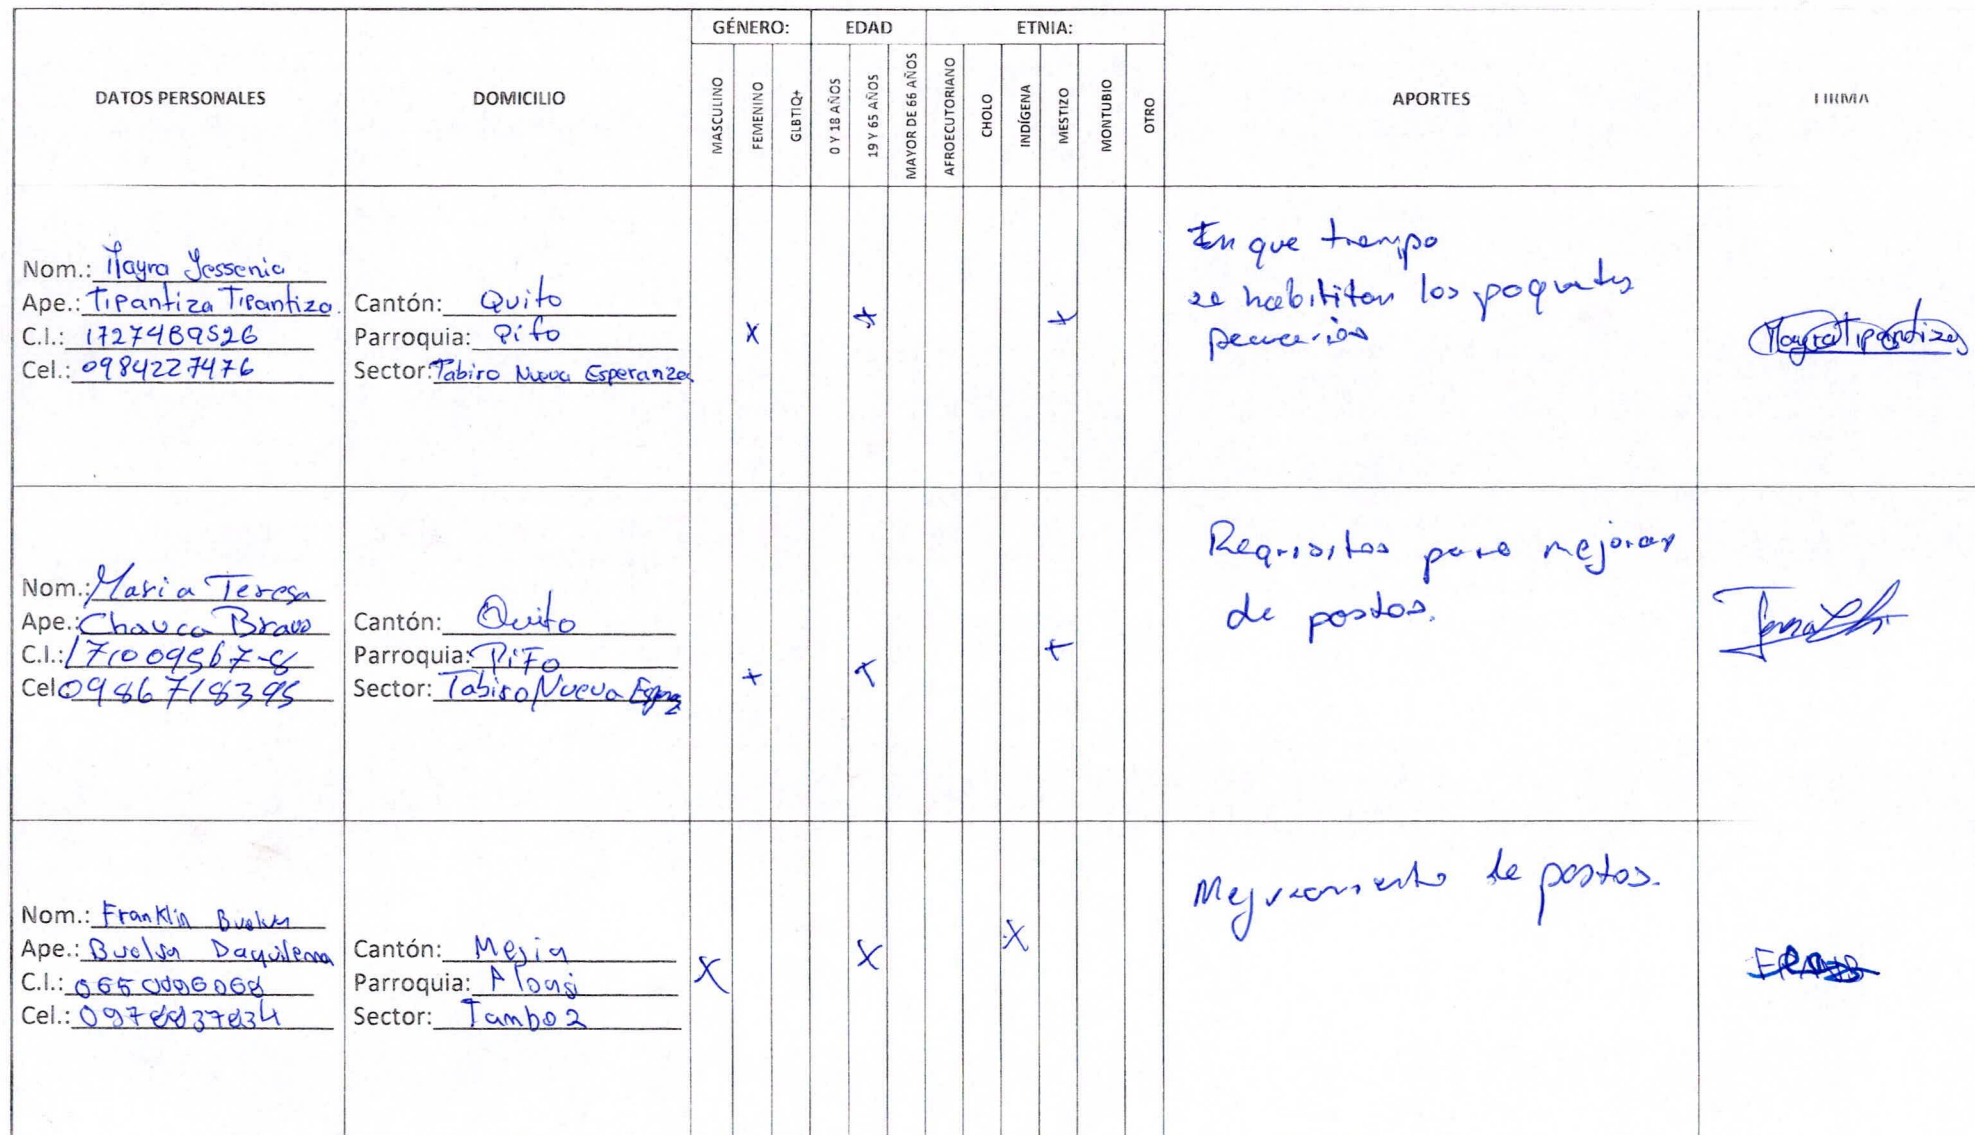 GÉNERO: EDAD ETNIA:
DATOS PERSONALES DOMICILIO MASCULINO FEMENINO GLBTIQ+ 0 Y 18 AÑOS 19 Y 65 AÑOS MAYOR DE 66 AÑOS AFROECUTORIANO CHOLO INDÍGENA MESTIZO MONTUBIO OTRO APORTES FIRMA
Nom.: Mayra Jessenia
Ape.: Tipantiza Tipantiza
C.I.: 1727489526
Cel.: 0984227476
Cantón: Quito
Parroquia: Pifo
Sector: Tabiro Nueva Esperanza
X X X
En que tiempo
se habilitan los paquetes
pecuarios
Mayra Tipantiza
Nom.: Maria Teresa
Ape.: Chauca Bravo
C.I.: 171009567-8
Cel 0986718395
Cantón: Quito
Parroquia: Pifo
Sector: Tabiro Nueva
x x x
Requisitos para mejorar
de pastos.
Nom.: Franklin
Ape.: Daquilema
C.I.:
Cel.:
Cantón: Mejia
Parroquia: Aloag
Sector: Tambo 2
X X X
Mejoramiento de pastos.